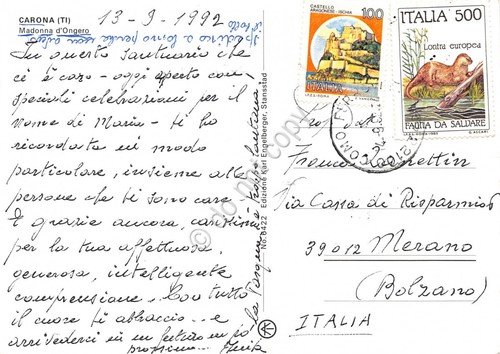 CARONA (TI)
Madonna d'Ongero
13-9-1992
In questo santuario che
ci è caro - oggi aperto con
speciali celebrazioni per il
nome di Maria - ti ho
ricordata in modo
particolare, insieme alle
persone che ti sono care.
E grazie ancora, carissima
per la tua affettuosa,
generosa, intelligente
comprensione. Con tutto
il cuore ti abbraccio.. e
arrivederci in un
No 6422 Edizione Karl Engelberger, Stansstad
CASTELLO
ARAGONESE - ISCHIA
100
ITALIA
I.P.Z.S.-ROMA
ITALIA 500
Lontra europea
FAUNA DA SALVARE
I.P.Z.S. ROMA
COMO
Franco
Via Cassa di Risparmio
39012 Merano
(Bolzano)
ITALIA